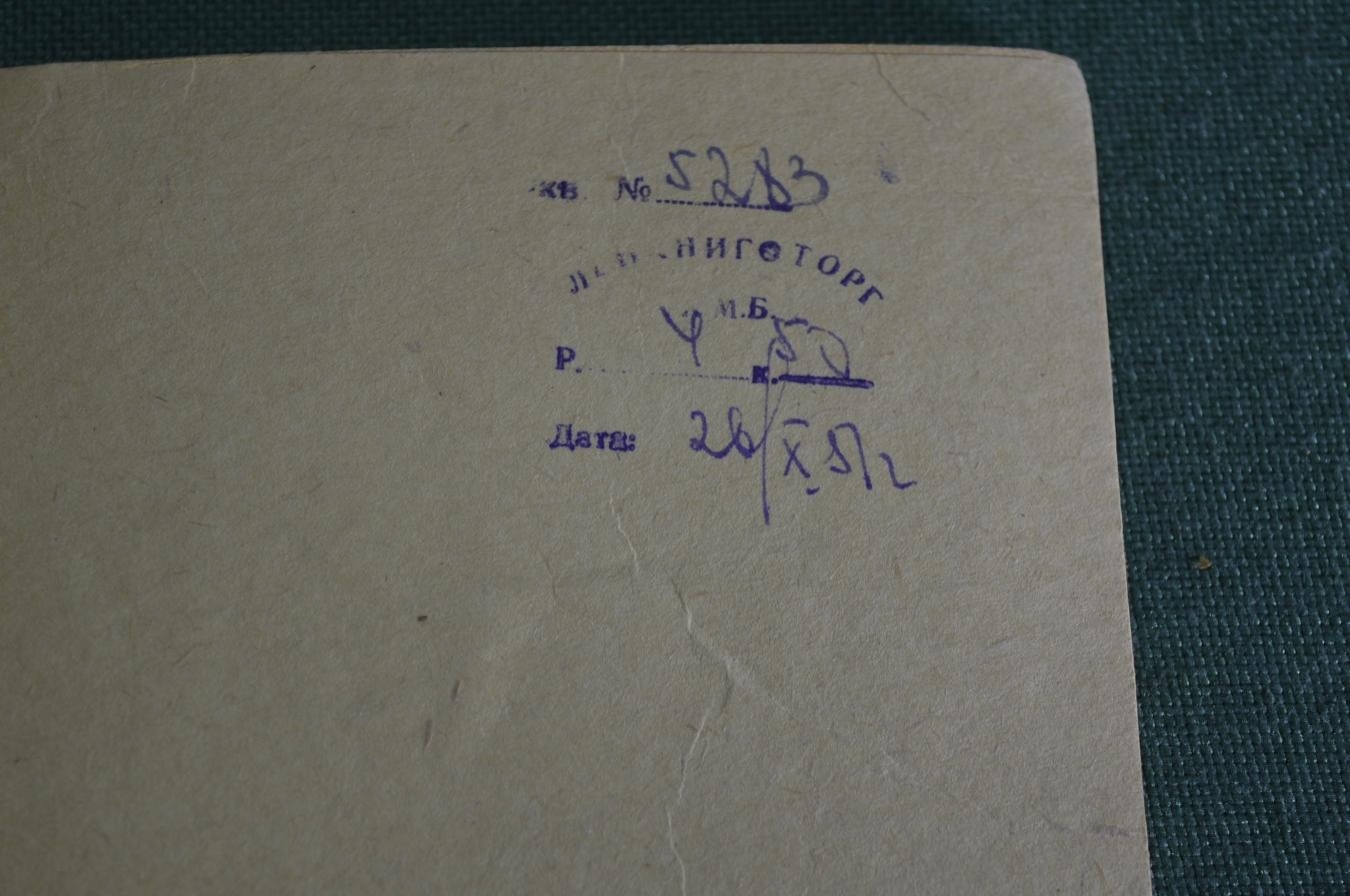 кв. № 5283
ЛЕНКНИГОТОРГ
М.Б.
Р. 4 к. 50
Дата: 26/X 57 г